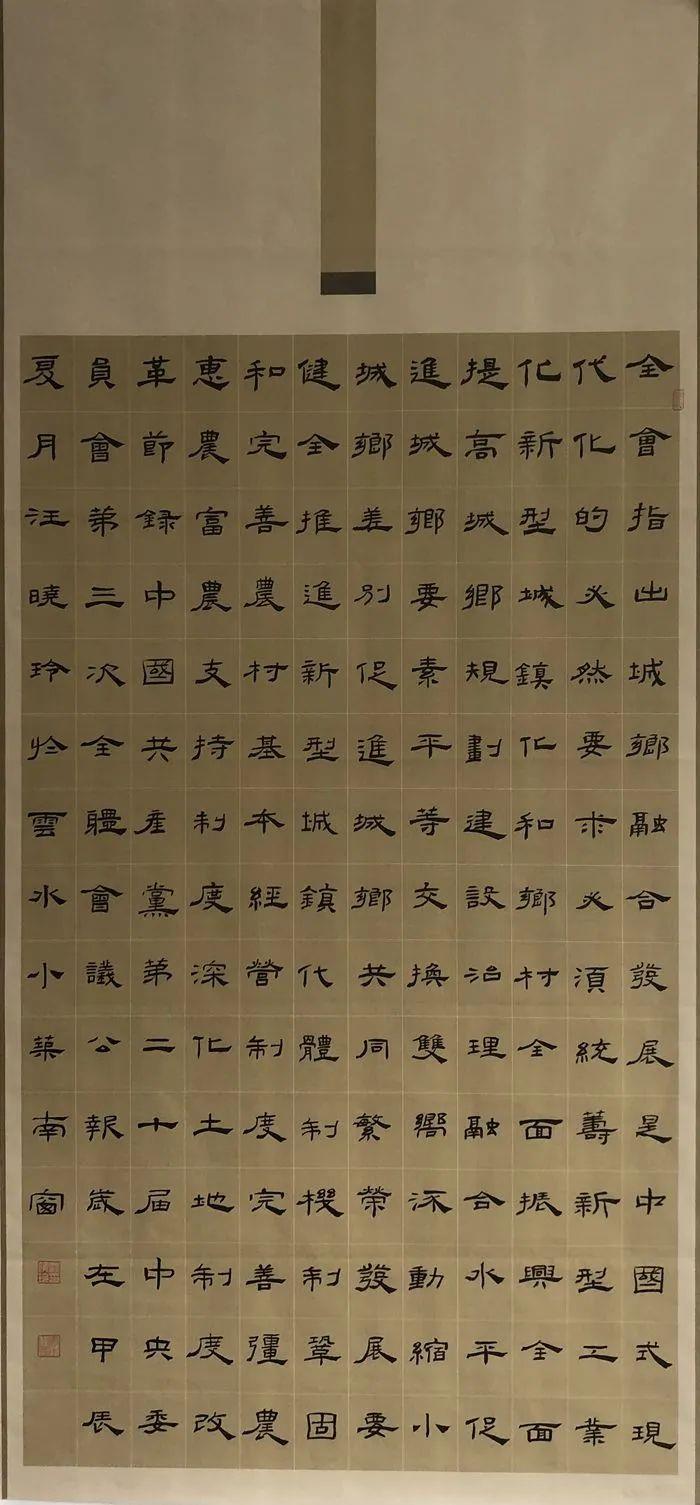 全會指出城鄉融合發展是中國式現
代化的必然要求必須統籌新型工業
化新型城鎮化和鄉村全面振興全面
提高城鄉規劃建設治理融合水平促
進城鄉要素平等交換雙嚮流動縮小
城鄉差別促進城鄉共同繁榮發展要
健全推進新型城鎮代體制機制鞏固
和完善農村基本經營制度完善彊農
惠農富農支持制度深化土地制度改
革節録中國共產黨第二十届中央委
員會第三次全體會議公報歲在甲辰
夏月汪曉玲於雲水小築南窗